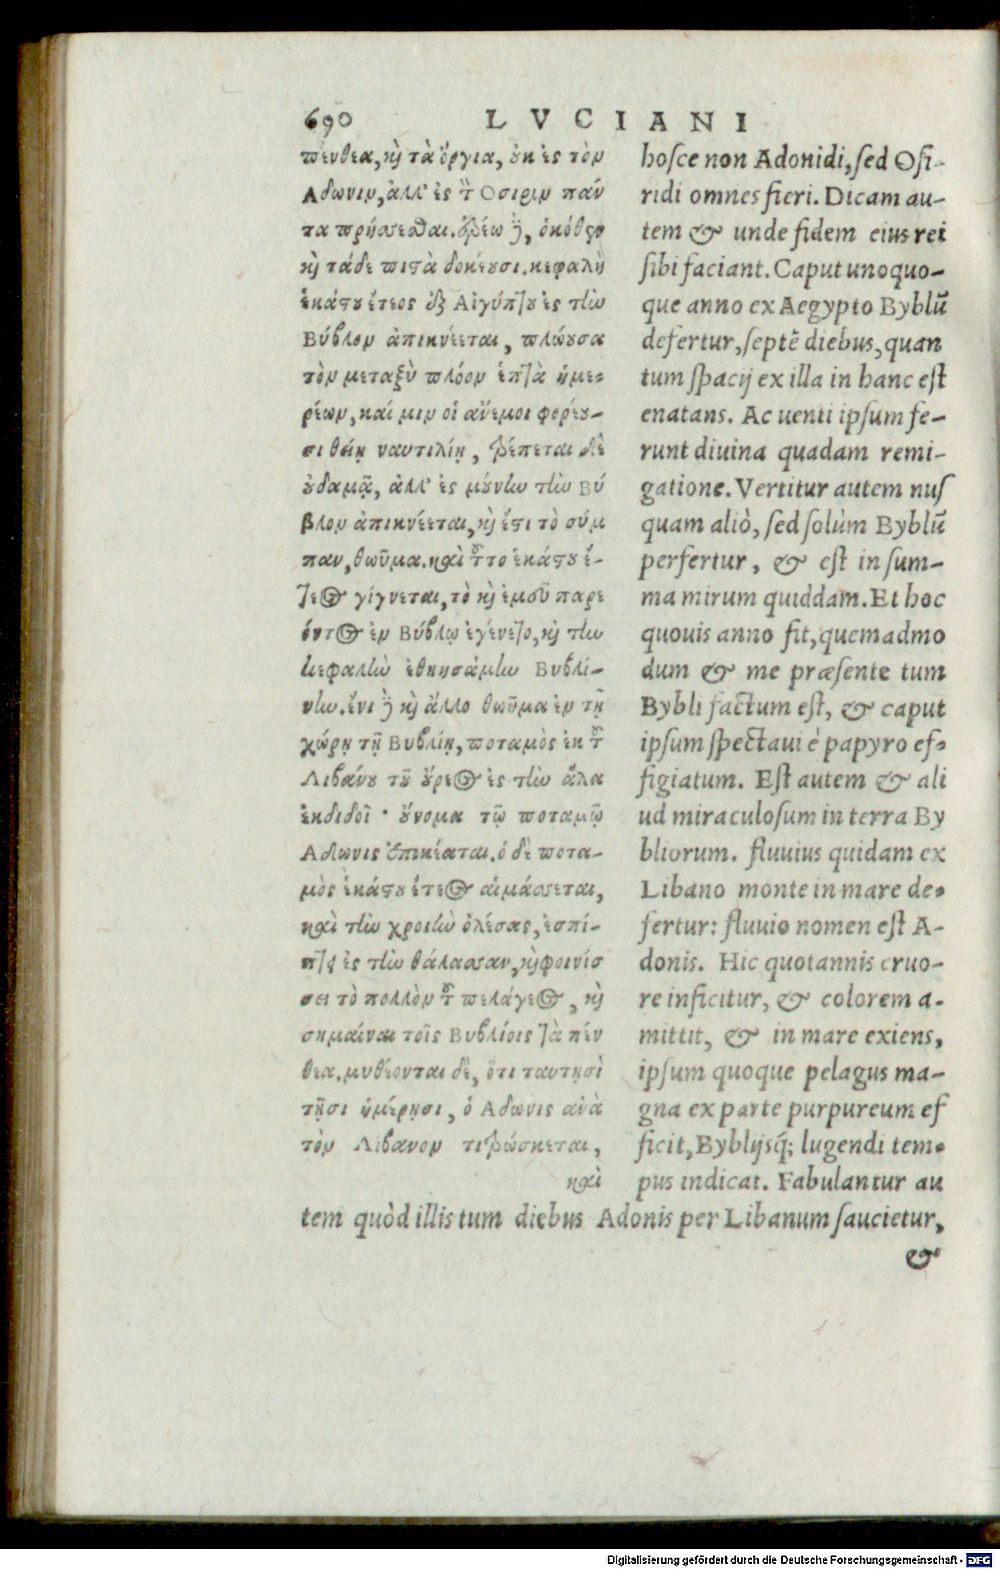 690 LVCIANI
πένθεα, ϗ τὰ ὄργια, ȣ̓κ ἐς τὸν
Αδωνιν, ἀλλ' ἐς τ̃ Οσιριν πάν
τα πρήσσεσθαι. ἐρέω ὃ, ὁκόθεν
ϗ τάδε πιστὰ δοκέȣσι. κεφαλὴ
ἑκάστȣ ἔτεος ἐξ Αἰγύπτȣ ἐς τὴν
Βύβλον ἀπικνέεται, πλώȣσα
τὸν μεταξὺ πλόον ἑπτὰ ἡμε-
ρέων, καί μιν οἱ ἄνεμοι φορέȣ-
σι θείῃ ναυτιλίῃ, τρέπεται δὲ
ȣ̓δαμᾷ, ἀλλ' ἐς μȣ́νην τὴν Βύ
βλον ἀπικνέεται, ϗ ἔστι τὸ σύμ
παν, θωῦμα. καὶ τȣ͂το ἑκάστȣ ἔ-
τεος γίγνεται, τὸ ϗ ἐμεῦ παρε
όντος ἐν Βύβλῳ ἐγένετο, ϗ τὴν
κεφαλὴν ἐθηησάμην Βυβλί-
νην. ἔνι ὃ ϗ ἄλλο θωῦμα ἐν τῇ
χώρῃ τῇ Βυβλίῃ, ποταμὸς ἐκ τȣ͂
Λιβάνȣ τȣ͂ ȣ̓́ρεος ἐς τὴν ἅλα
ἐκδιδοῖ· ȣ̓́νομα τῷ ποταμῷ
Αδωνις ἐπικέαται. ὁ δὲ ποτα-
μὸς ἑκάστȣ ἔτεος αἱμάσσεται,
καὶ τὴν χροιὴν ὀλέσας, ἐσπί-
πτει ἐς τὴν θάλασσαν, ϗ φοινίσ
σει τὸ πολλὸν τȣ͂ πελάγεος, ϗ
σημαίνει τοῖς Βυβλίοις τὰ πέν
θεα. μυθέονται δὲ, ὅτι ταύτῃσι
τῇσι ἡμέρῃσι, ὁ Αδωνις ἀνὰ
τὸν Λίβανον τιτρώσκεται,
καὶ
hosce non Adonidi, sed Osi-
ridi omnes fieri. Dicam au-
tem & unde fidem eius rei
sibi faciant. Caput unoquo-
que anno ex Aegypto Byblũ
defertur, septẽ diebus, quan
tum spacij ex illa in hanc est
enatans. Ac uenti ipsum fe-
runt diuina quadam remi-
gatione. Vertitur autem nus
quam aliò, sed solùm Byblũ
perfertur, & est in sum-
ma mirum quiddam. Et hoc
quouis anno fit, quemadmo
dum & me præsente tum
Bybli factum est, & caput
ipsum spectaui è papyro ef-
figiatum. Est autem & ali
ud miraculosum in terra By
bliorum. fluuius quidam ex
Libano monte in mare de-
fertur: fluuio nomen est A-
donis. Hic quotannis cruo-
re inficitur, & colorem a-
mittit, & in mare exiens,
ipsum quoque pelagus ma-
gna ex parte purpureum ef
ficit, Byblijsq́; lugendi tem-
pus indicat. Fabulantur au
tem quòd illis tum diebus Adonis per Libanum saucietur,
&
Digitalisierung gefördert durch die Deutsche Forschungsgemeinschaft - DFG